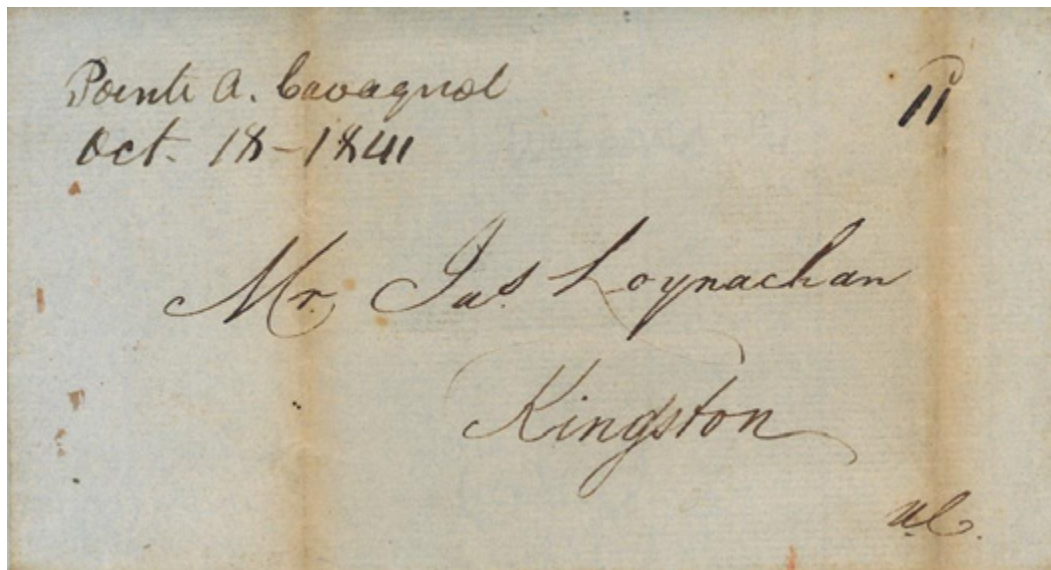 Pointe A. Cavagnol
Oct. 18-1841
11
Mr. Jas. Loynachan
Kingston
U.C.